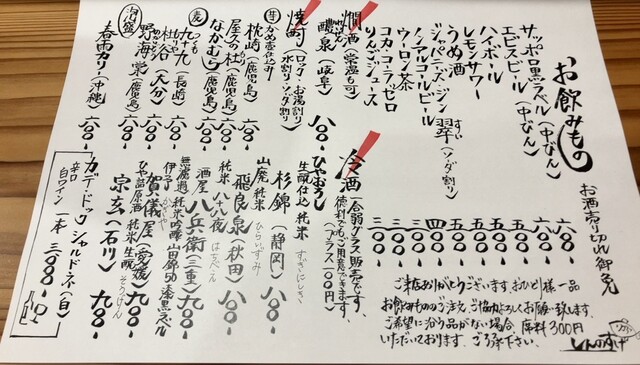 お飲みもの
お酒売り切れ御免
サッポロ黒ラベル(中びん)
エビスビール(中びん)
ハイボール
レモンサワー
うめ酒
ジャパニーズジン 翠(ソーダ割り)
すい
ノンアルコールビール
ウーロン茶
コカ・コーラゼロ
りんごジュース
六〇〇
六〇〇
五〇〇
五〇〇
五〇〇
五〇〇
四〇〇
三〇〇
三〇〇
三〇〇
ご来店ありがとうございます。おひとり様一品
お飲みもののご注文、ご協力よろしくお願い致します。
ご希望に沿う品がない場合、席料300円
いただいております。ご了承下さい。
燗酒(常温も可)
醴泉(岐阜) 八〇〇
焼酎(ロック・お湯割り
水割り・ソーダ割り)
芋
かめ壺仕込み
枕崎(鹿児島) 六〇〇
屋久の杜(鹿児島) 六〇〇
なかむら(鹿児島) 八〇〇
麦
つくも
九十九(長崎) 六〇〇
杜谷(大分) 六〇〇
野海棠(鹿児島) 六〇〇
泡盛
春雨カリー(沖縄) 六〇〇
冷酒(一合弱グラス販売です。
徳利でもご用意できます。
(グラス一〇〇円)
ひやおろし
生酛仕込 純米
杉錦(静岡) 八〇〇
すぎにしき
山廃純米
飛良泉(秋田) 八〇〇
ひらいずみ
純米 八十八夜
酒屋八兵衛(三重) 九〇〇
はちべえ
無濾過 純米吟醸 山田錦50 漆黒ラベル
伊予
賀儀屋(愛媛) 九〇〇
かぎや
ひや詰原酒 純米生酛
宗玄(石川) 九〇〇
そうげん
カデ・ドック シャルドネ(白)
辛口
白ワイン 一本 三〇〇〇